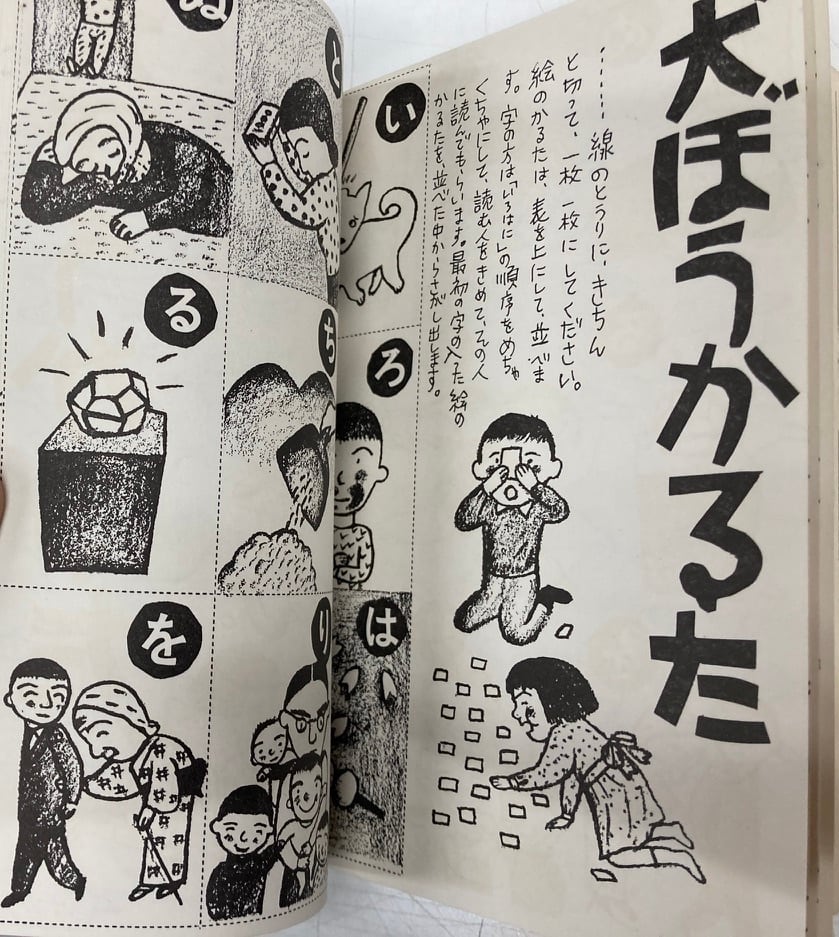 犬ぼうかるた
……線のとうりに、きちん
と切って、一枚一枚にしてください。
絵のかるたは、表を上にして、並べま
す。字の方は「いろはに」の順序をめちゃ
くちゃにして、読む人をきめて、その人
に読んでもらいます。最初の字の入った絵の
かるたを、並べた中からさがし出します。
い
ろ
は
と
ち
り
ぬ
る
を